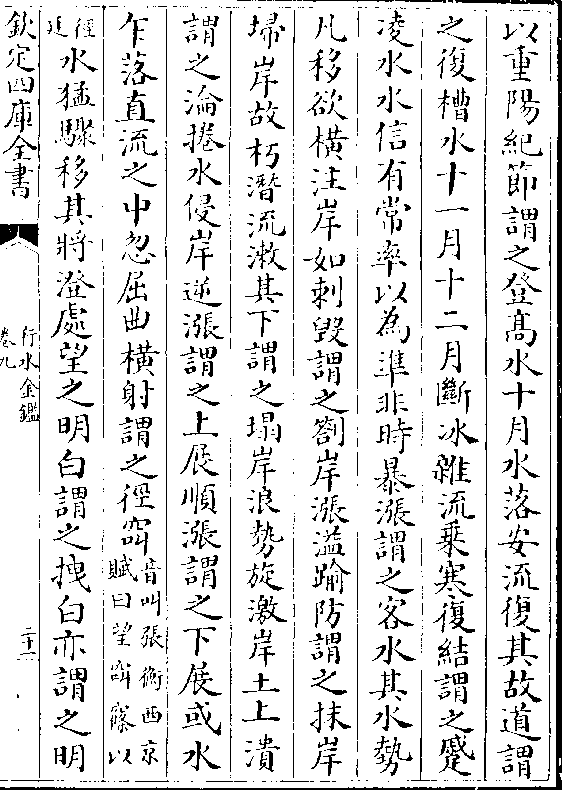 以重陽紀節謂之登髙水十月水落安流復其故道謂
之復槽水十一月十二月斷冰雜流乗寒復結謂之蹙
凌水水信有常率以為準非時暴漲謂之客水其水勢
凡移欲橫注岸如刺毁謂之劄岸漲溢踰防謂之抹岸
埽岸故朽潛流漱其下謂之塌岸浪勢旋激岸土上潰
謂之淪捲水侵岸逆漲謂之上展順漲謂之下展或水
乍落直流之中忽屈曲橫射謂之徑窌音叫張衡西京賦曰望窌窱以
徑廷水猛驟移其將澄處望之明白謂之拽白亦謂之明
欽定四庫全書
行水金鑑
卷九
二十二